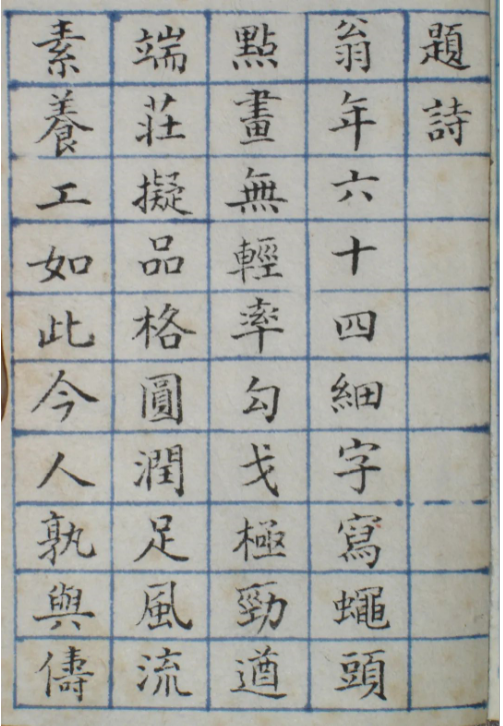 題詩
翁年六十四細字寫蠅頭
點畫無輕率勾戈極勁遒
端莊擬品格圓潤足風流
素養工如此今人孰與儔